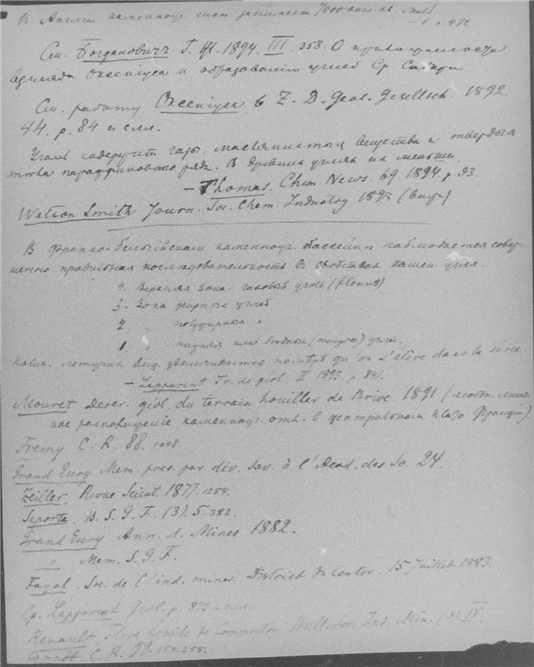 В Англии каменноуг. сист. занимает 7000 англ. кв. миль
p. 472
См. Богданович Г. Ж. 1894. III. 358. О применимости
взгляда Охсениуса к образованию углей Ср. Сибири
См. работу Охсениуса в Z. D. Geol. Gesellsch. 1892
44. p. 84 и след.
Уголь содержит газы, маслянистыя вещества и твердыя
тела параффинового ряда. В древних углях их меньше.
— Thomas. Chem. News. 69. 1894 p. 93.
Watson Smith Journ. Soc. Chem. Industry 1893
В франко-бельгийском каменноуг. бассейне наблюдается совер-
шенно правильная последовательность в свойствах камен. угля.
4. Верхняя зона газовых углей (flénus)
3. Зона жирных углей
2. " полужирных "
1. " (тощих) угл.
Колич. летучих вещ. увеличивается qu'on s'élève dans la série.
— Lapparent Tr. de géol. II 1893. p. 841.
Mouret géol. du terrain houiller de Brive. 1891
каменноуг. отл. в центральном плато Франции).
Fremy C. R. 88. 1048.
Grand Eury Mem. pres. par div. sav. à l'Acad. des Sc. 24.
Zeiller. Revue Scient. 1877. 1258.
Saporta. B. S. G. F. (3). 5. 382.
Grand Eury Ann. d. Mines 1882.
" Mem. S. G. F.
Fayol. Soc. de l'ind. miner. District du Centre. 15 Juillet 1883.
Ср. Lapparent Geol. p. 875 и след.
Renault. Flore fossile de Commentry. Bull. Soc. Ind. Min. (3) IV.
Carnot. C. R. 99.